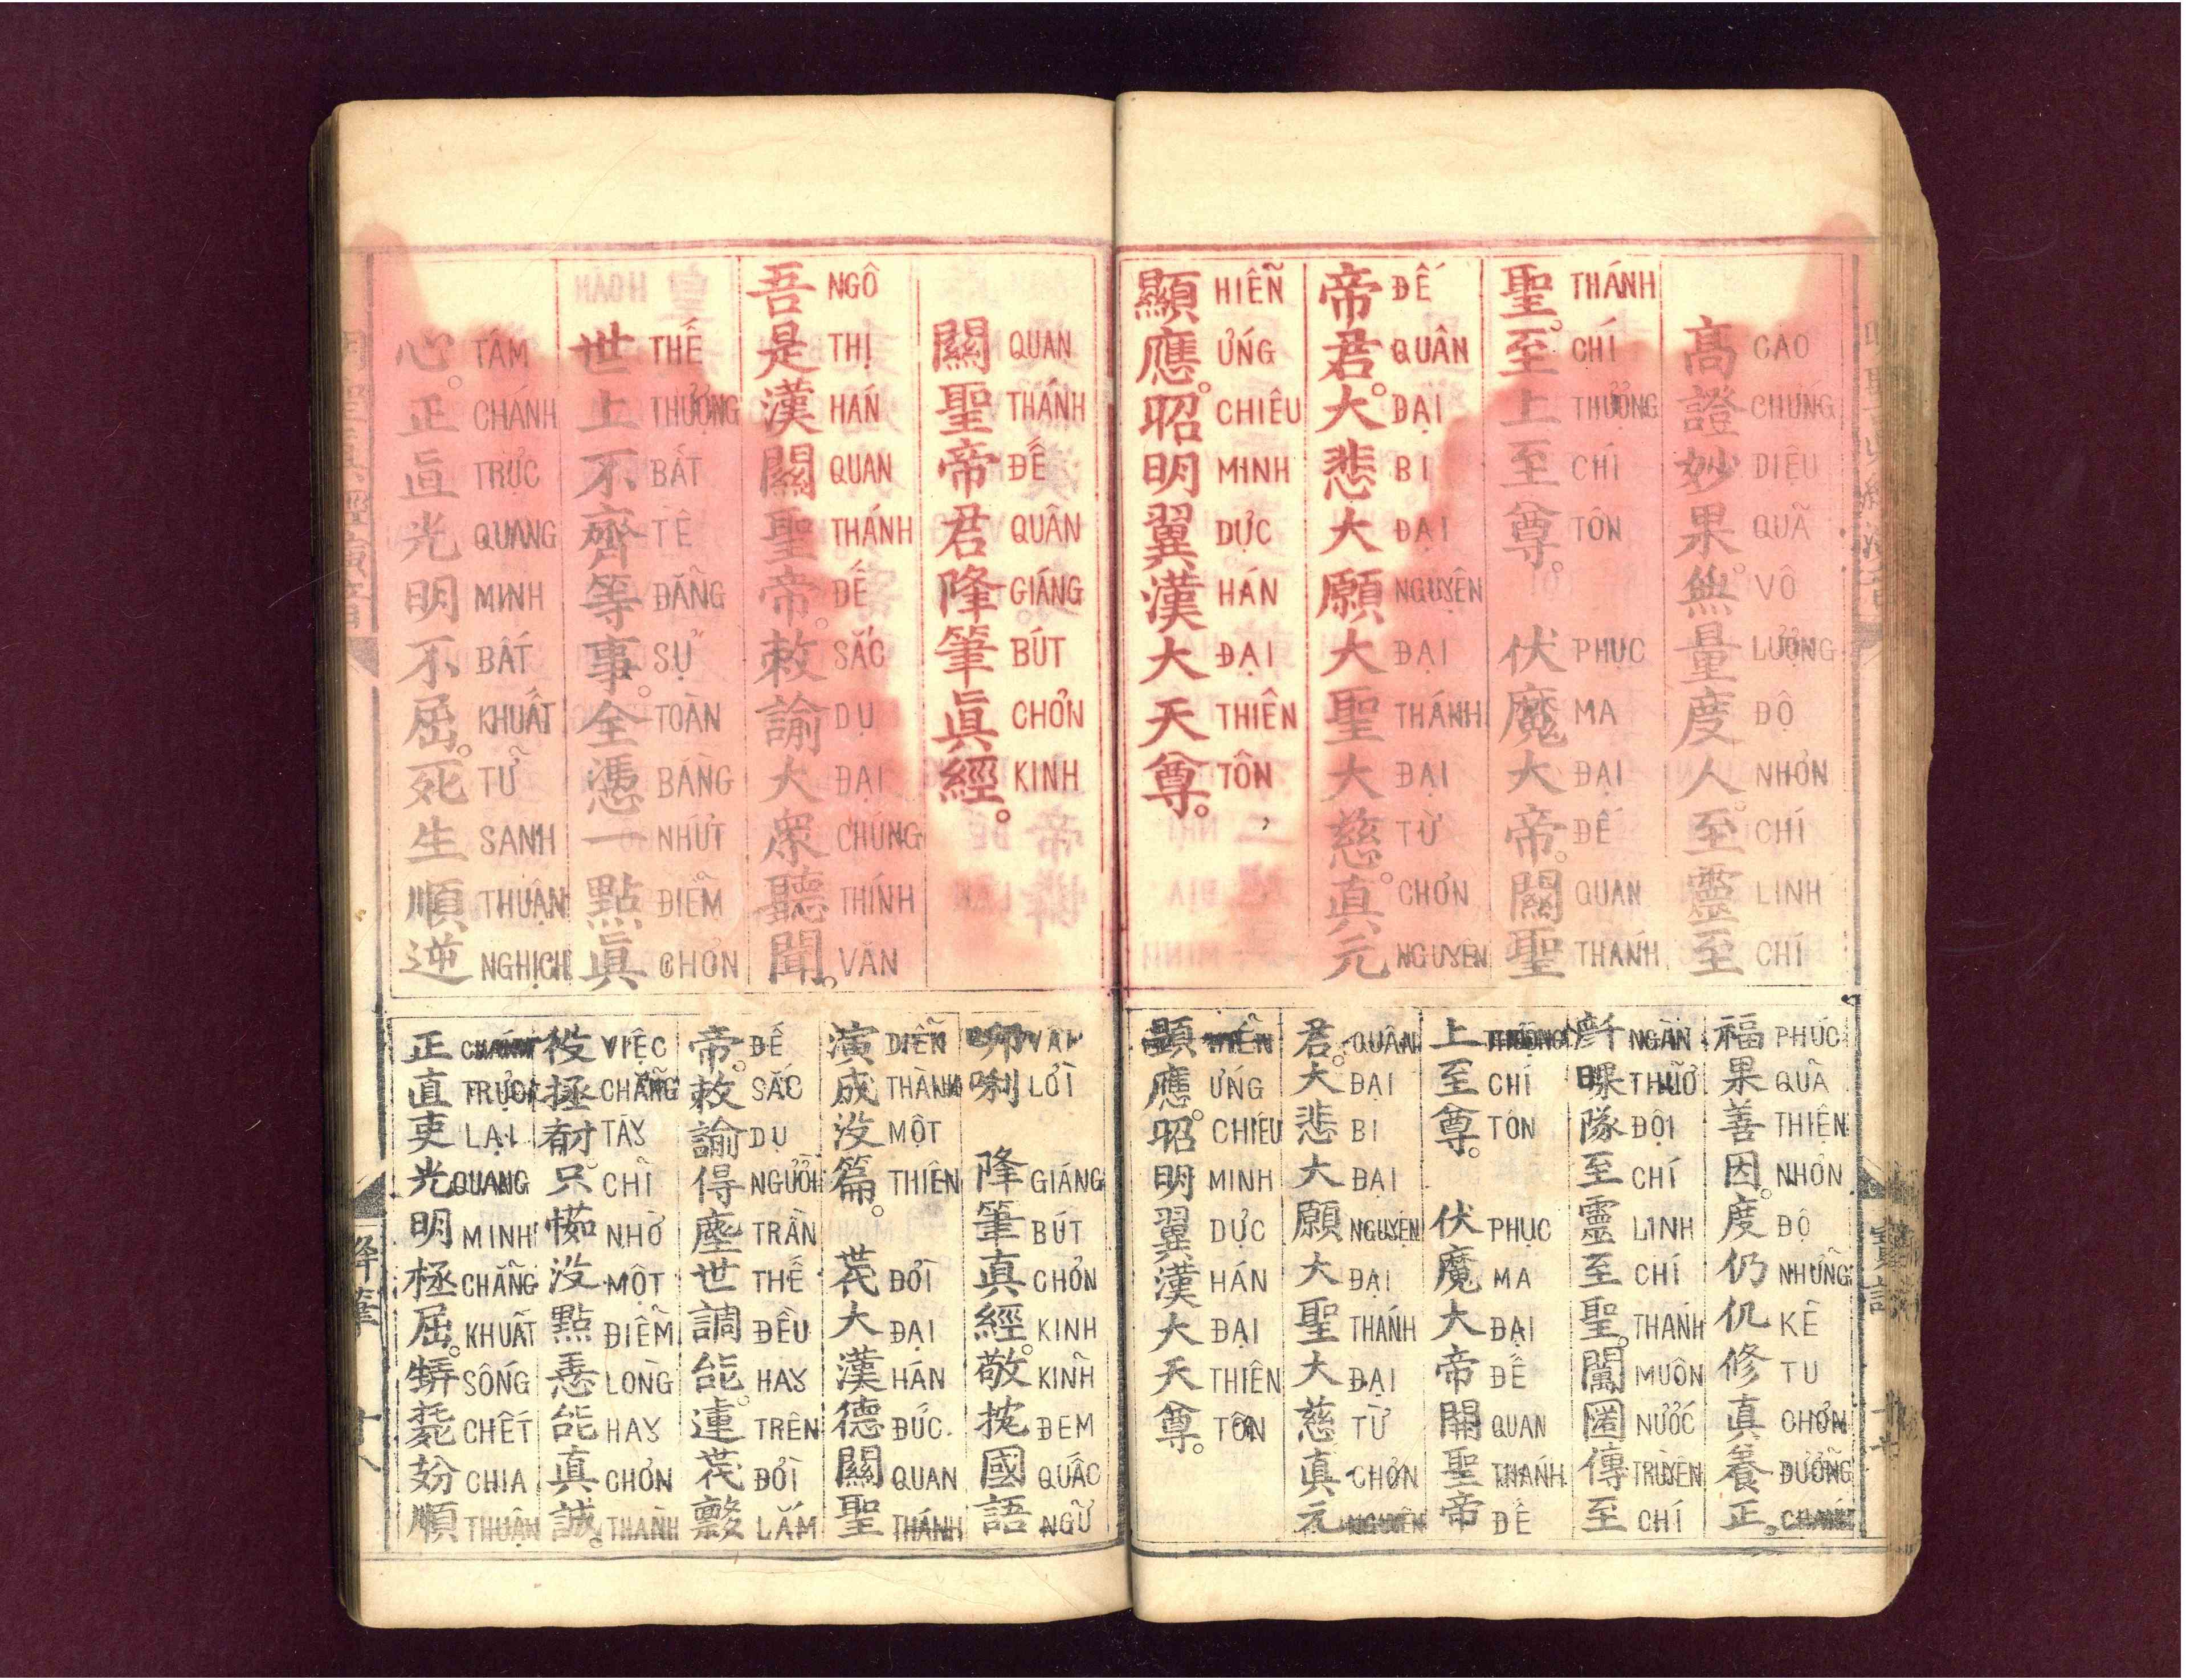 明聖真經演音
寶誥
十七
高證妙果。無量度人。至靈至
CAO CHỨNG DIỆU QUÃ VÔ LƯỢNG ĐỘ NHƠN CHÍ LINH CHÍ
聖。至上至尊。伏魔大帝。關聖
THÁNH CHÍ THƯỢNG CHÍ TÔN PHỤC MA ĐẠI ĐẾ QUAN THÁNH
帝君。大悲大願大聖大慈。真元
ĐẾ QUÂN ĐẠI BI ĐẠI NGUYỆN ĐẠI THÁNH ĐẠI TỪ CHƠN NGUYÊN
顯應。昭明翼漢大天尊。
HIỄN ỨNG CHIÊU MINH DỰC HÁN ĐẠI THIÊN TÔN
福果善因。度仍仉修真養正。
PHÚC QUÃ THIỆN NHƠN ĐỘ NHỮNG KẼ TU CHƠN DƯỠNG CHÁNH
隊至靈至聖。傳至
NGÀN THUỞ ĐỘI CHÍ LINH CHÍ THÁNH MUÔN NƯỚC TRUYỀN CHÍ
上至尊。伏魔大帝關聖帝
THƯỢNG CHÍ TÔN PHỤC MA ĐẠI ĐẾ QUAN THÁNH ĐẾ
君。大悲大願大聖大慈真元
QUÂN ĐẠI BI ĐẠI NGUYỆN ĐẠI THÁNH ĐẠI TỪ CHƠN NGUYÊN
顯應。昭明翼漢大天尊。
HIỄN ỨNG CHIÊU MINH DỰC HÁN ĐẠI THIÊN TÔN
關聖帝君降筆眞經。
QUAN THÁNH ĐẾ QUÂN GIÁNG BÚT CHƠN KINH
吾是漢關聖帝。敕諭大衆聽聞。
NGÔ THỊ HÁN QUAN THÁNH ĐẾ SẮC DỤ ĐẠI CHÚNG THÍNH VĂN
世上不齊等事。全憑一點眞
THẾ THƯỢNG BẤT TỀ ĐẴNG SỰ TOÀN BẰNG NHỨT ĐIỄM CHƠN
心。正直光明不屈。死生順逆
TÂM CHÁNH TRỰC QUANG MINH BẤT KHUẤT TỬ SANH THUẬN NGHỊCH
唎 降筆真經。敬國語
LỜI GIÁNG BÚT CHƠN KINH KINH ĐEM QUẤC NGỮ
演成沒篇。大漢德關聖
DIỄN THÀNH MỘT THIÊN ĐỜI ĐẠI HÁN ĐỨC QUAN THÁNH
帝。敕諭得塵世調能。
ĐẾ SẮC DỤ NGƯỜI TRẦN THẾ ĐỀU HAY TRÊN ĐỜI LẮM
役拯只沒點能真誠。
VIỆC CHẴNG TÀY CHỈ NHỜ MỘT ĐIỄM LÒNG HAY CHƠN THÀNH
正直吏光明極屈。順
CHÁNH TRỰC LẠI QUANG MINH CHẴNG KHUẤT SỐNG CHẾT CHIA THUẬN
降筆
十八